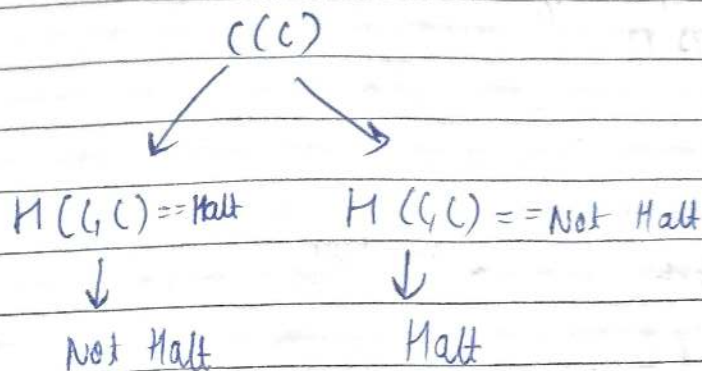 C(C)
H(C,C)==Halt H(C,C)==Not Halt
Not Halt Halt